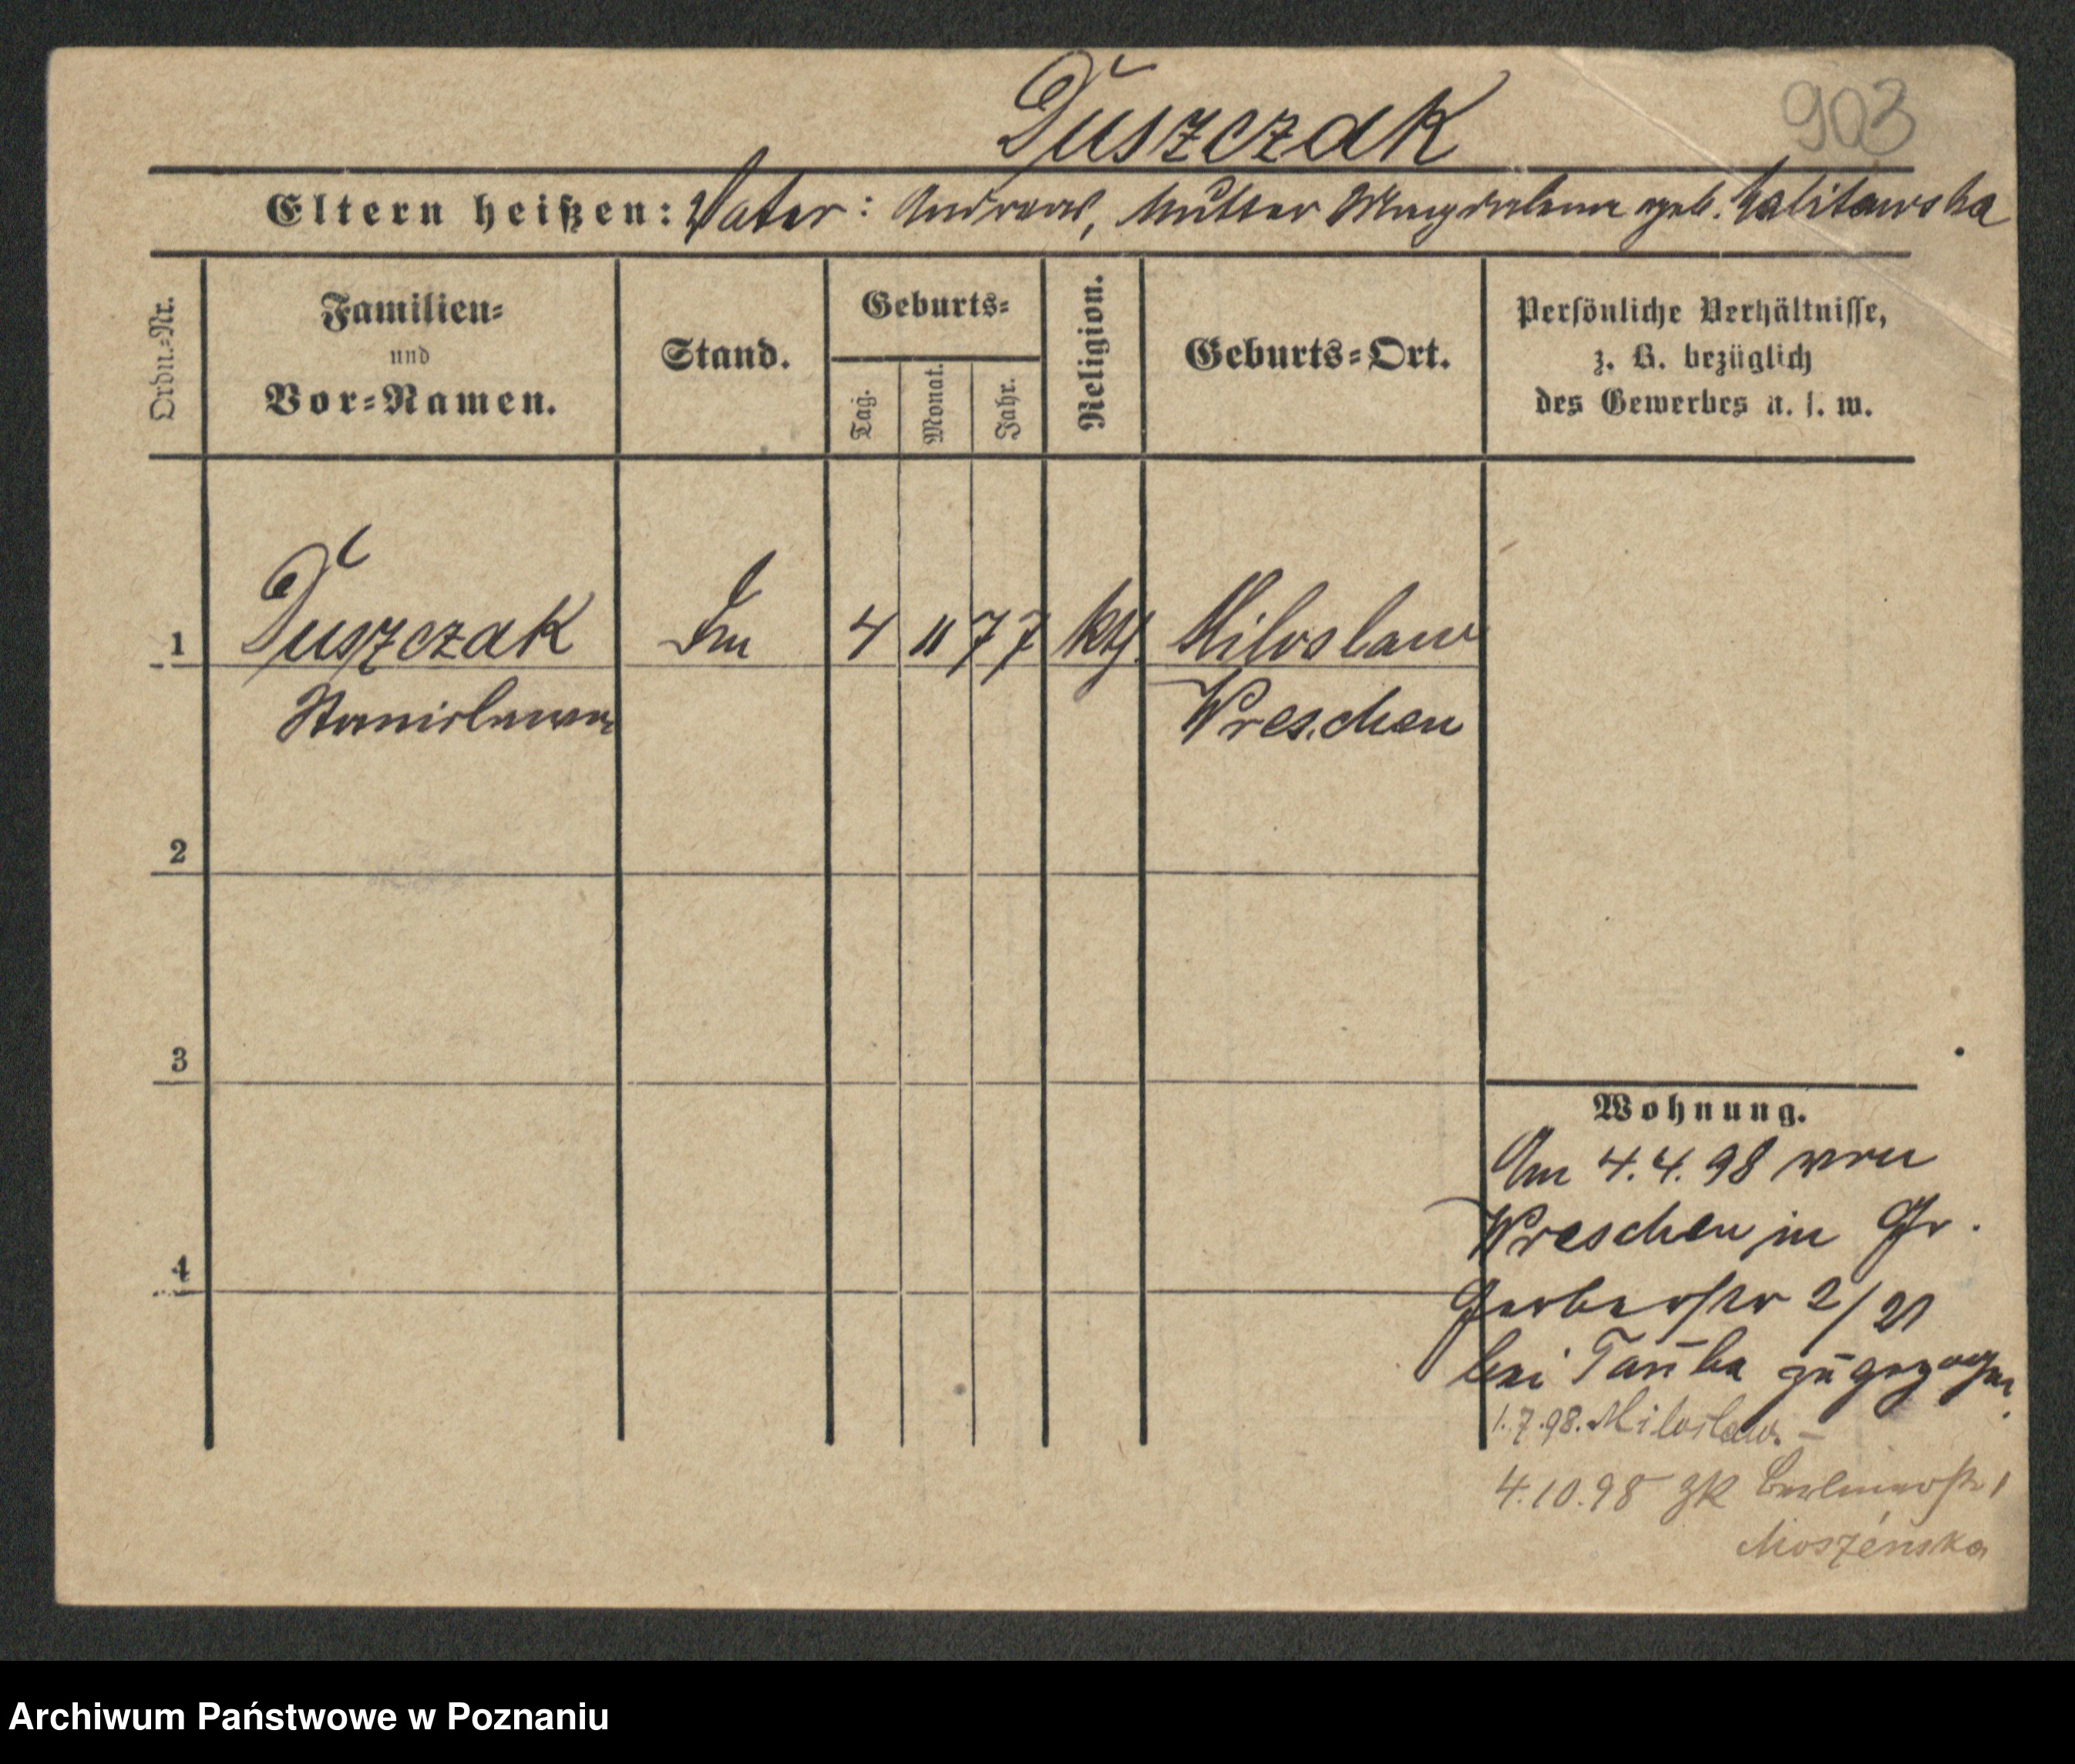 Duszczak
903
Eltern heißen: Vater: Andreas, Mutter Magdalena geb.
Ordn.-Nr.
Familien-
und
Vor-Namen.
Stand.
Geburts-
Tag.
Monat.
Jahr.
Religion.
Geburts-Ort.
Persönliche Verhältnisse,
z. B. bezüglich
des Gewerbes u. s. w.
1 Duszczak 4 11 77 kth. Miloslaw
Stanislawa Wreschen
2
3
4
Wohnung.
Am 4.4.98 von
Wreschen in Gr.
Gerberstr 2/21
bei zugezogen.
1.7.98. Miloslaw. –
4.10.98 Berlinerstr 1
Moszeńska
Archiwum Państwowe w Poznaniu